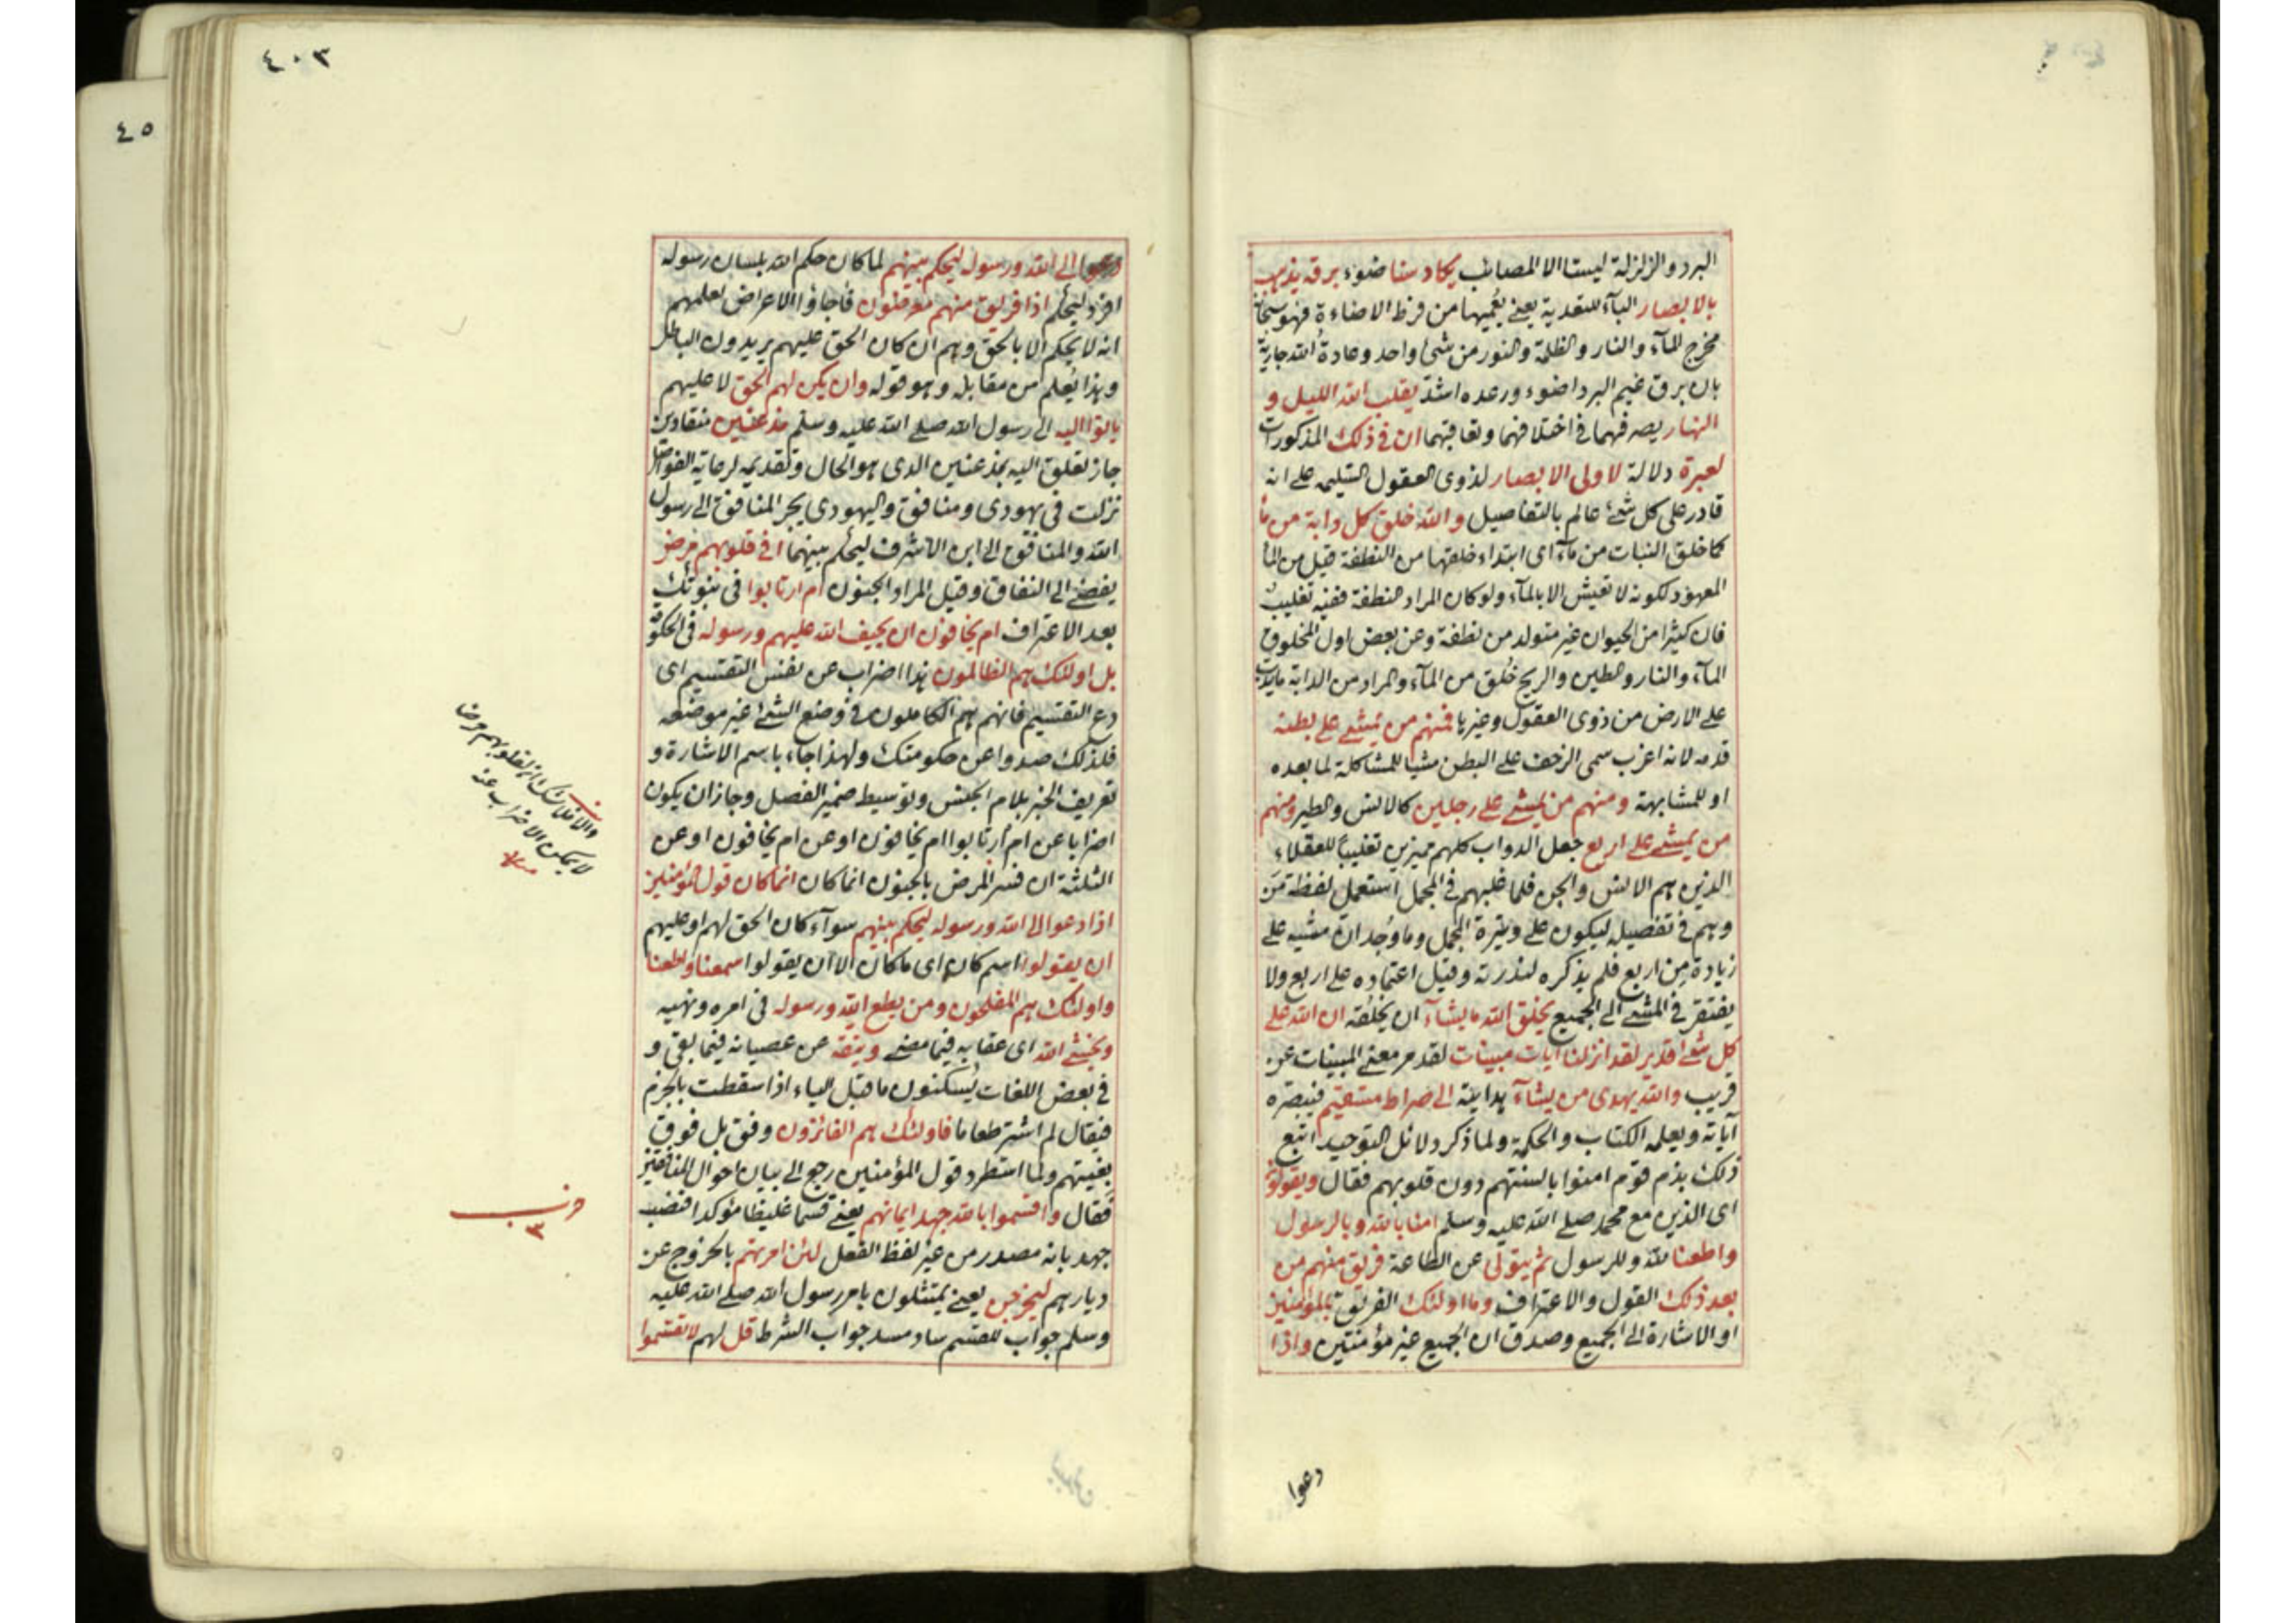 البرد والزلزلة ليستا الا المصائب يكاد سنا ضوء برقه يذهب
بالابصار الباء للتعدية يعنى يُعميها من فرط الاضاءة فهو سبحانه
مخرج الماء والنار والظلمة والنور من شئ واحد وعادةُ الله جارية
بان برق غيم البرد اضوء ورعده اشد يقلب الله الليل و
النهار يصرفهما فى اختلافهما وتعاقبهما ان فى ذلك المذكورات
لعبرة دلالة لاولى الابصار لذوى العقول السليمه على انه
قادر على كل شئ عالم بالتفاصيل والله خلق كل دابة من ماء
كما خلق النبات من ماء اى ابتداء خلقها من النطفة قيل من الماء
المعهود لكونه لا تعيش الا بالماء ولو كان المراد النطفة ففيه تغليب
فان كثيرا من الحيوان غير متولد من نطفة وعن بعض اول المخلوق
الماء والنار والطين والريح خلق من الماء والمراد من الدابة مايدب
على الارض من ذوى العقول وغيرها فمنهم من يمشى على بطنه
قدمه لانه اغرب سمى الزحف على البطن مشيا للمشاكلة لما بعده
او للمشابهة ومنهم من يمشى على رجلين كالانس والطير ومنهم
من يمشى على اربع جعل الدواب كلهم مميزين تغليبا للعقلاء
الذين هم الانس والجن فلما غلبهم فى المجمل استعمل لفظة مَن
وهم فى تفصيله ليكون على وتيرة المجمل وما وُجد ان مشيه على
زيادة مِن اربع فلم يذكره لندرته وقيل اعتماده على اربع ولا
يفتقر فى المشى الى الجميع يخلق الله ما يشاء ان يخلقه ان الله على
كل شئ قدير لقد انزلنا ايات مبينات لقد مر معنى المبينات عن
قريب والله يهدى من يشاء هدايته الى صراط مستقيم فيبصره
آياته ويعلمه الكتاب والحكمة ولما ذكر دلائل التوحيد اتبع
ذلك بذم قوم امنوا بالسنتهم دون قلوبهم فقال ويقولون
اى الذين مع محمد صلى الله عليه وسلم امنا بالله وبالرسول
واطعنا لله وللرسول ثم يتولى عن الطاعة فريق منهم من
بعد ذلك القول والاعتراف وما اولئك الفريق بالمؤمنين
او الاشارة الى الجميع وصدق ان الجميع غير مؤمنين واذا
دعوا
٤٠٣
٤٥
دعوا الى الله ورسوله ليحكم بينهم لما كان حكم الله بلسان رسوله
افرد ليحكم اذا فريق منهم معرضون فاجاؤا الاعراض لعلمهم
انه لا يحكم الا بالحق وهم ان كان الحق عليهم يريدون الباطل
وهذا يُعلم من مقابله وهو قوله وان يكن لهم الحق لا عليهم
ياتوا اليه الى رسول الله صلى الله عليه وسلم مذعنين منقادين
جاز تعلق اليه بمذعنين الذى هو الحال وتقديمه لرعاية الفواصل
نزلت فى يهودى ومنافق واليهودى يجر المنافق الى رسول
الله والمنافق الى ابن الاشرف ليحكم بينهما افى قلوبهم مرض
يفضى الى النفاق وقيل المراد الجنون ام ارتابوا فى نبوتك
بعد الاعتراف ام يخافون ان يحيف الله عليهم ورسوله فى الحكومة
بل اولئك هم الظالمون هذا اضراب عن نفس التقسيم اى
دع التقسيم فانهم هم الكاملون فى وضع الشئ غير موضعه
فلذلك صدوا عن حكومتك ولهذا جاء باسم الاشارة و
تعريف الخبر بلام الجنس وتوسيط ضمير الفصل وجاز ان يكون
اضرابا عن ام ارتابوا ام يخافون او عن ام يخافون او عن
الثلثة ان فسر المرض بالجنون انما كان انما كان قول المؤمنين
اذا دعوا الى الله ورسوله ليحكم بينهم سواء كان الحق لهم او عليهم
ان يقولوا اسم كان اى ما كان الا ان يقولوا سمعنا واطعنا
واولئك هم المفلحون ومن يطع الله ورسوله فى امره ونهيه
ويخشى الله اى عقابه فيما مضى ويتقه عن عصيانه فيما بقى و
فى بعض اللغات يُسكنون ما قبل الياء اذا سقطت بالجزم
فيقال لم اشتر طعاما فاولئك هم الفائزون وفق بل فوق
بغيتهم ولما استطرد قول المؤمنين رجع الى بيان احوال المنافقين
فقال واقسموا بالله جهد ايمانهم يعنى قسما غليظا مؤكدا فنصب
جهد بانه مصدر من غير لفظ الفعل لئن امرتهم بالخروج عن
ديارهم ليخرجن يعنى يمتثلون بامر رسول الله صلى الله عليه
وسلم جواب للقسم ساد مسد جواب الشرط قل لهم لا تقسموا
والا فلا شك ان لقلوبهم مرضا
لا يمكن الاضراب عنه
حزب
٣